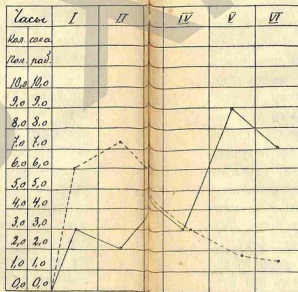 Часы I II IV V VI
Кол. сока
10,0 10,0
9,0 9,0
8,0 8,0
7,0 7,0
6,0 6,0
5,0 5,0
4,0 4,0
3,0 3,0
2,0 2,0
1,0 1,0
0,0 0,0